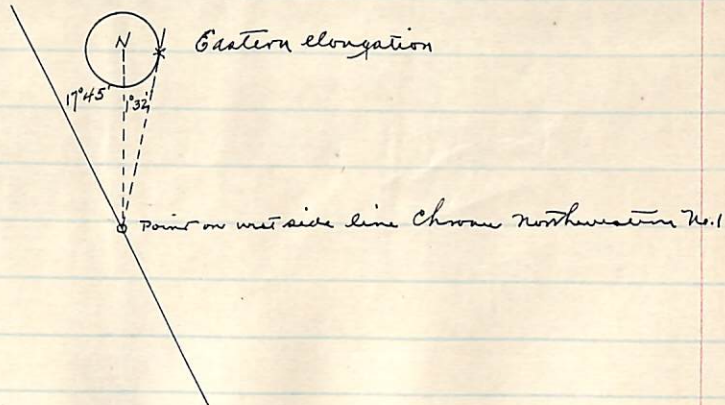 N
Eastern elongation
17°45'
1°32'
Point on west side line Chrome Northwestern No.1